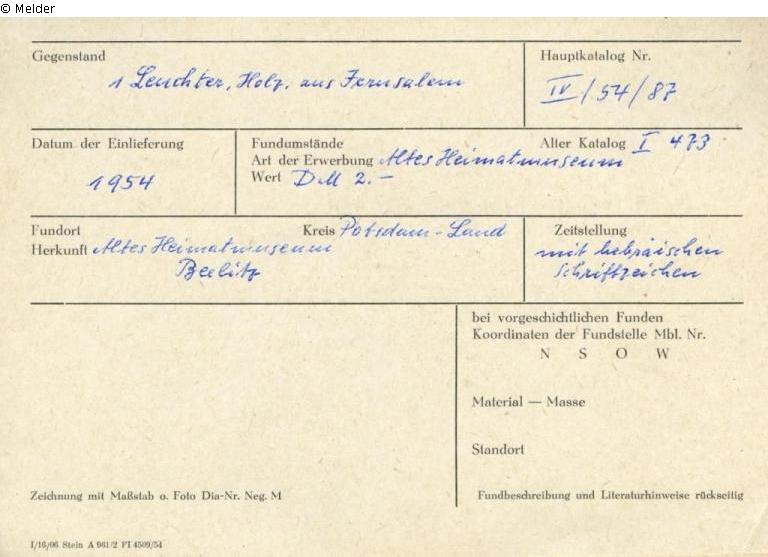 © Melder
Gegenstand
1 Leuchter, Holz, aus Jerusalem
Hauptkatalog Nr.
IV/54/87
Datum der Einlieferung
1954
Fundumstände
Alter Katalog I 473
Art der Erwerbung Altes Heimatmuseum
Wert DM 2.-
Fundort
Kreis Potsdam-Land
Herkunft Altes Heimatmuseum
Beelitz
Zeitstellung
mit hebräischen
Schriftzeichen
bei vorgeschichtlichen Funden
Koordinaten der Fundstelle Mbl. Nr.
N S O W
Material — Masse
Standort
Zeichnung mit Maßstab o. Foto Dia-Nr. Neg. M
Fundbeschreibung und Literaturhinweise rückseitig
I/16/06 Stein A 961/2 FI 4509/54